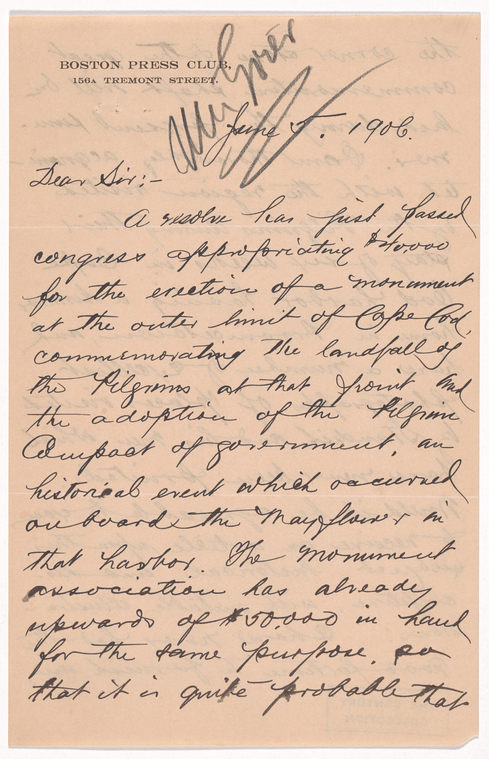 BOSTON PRESS CLUB,
156A TREMONT STREET.
June 5. 1906.
Dear Sir:-
A resolve has just passed
congress appropriating $40000
for the erection of a monument
at the outer limit of Cape Cod,
commemorating the landfall of
the Pilgrims at that point and
the adoption of the Pilgrim
Compact of government, an
historical event which occurred
on board the Mayflower in
that harbor. The monument
association has already
upwards of $50.000 in hand
for the same purpose, so
that it is quite probable that